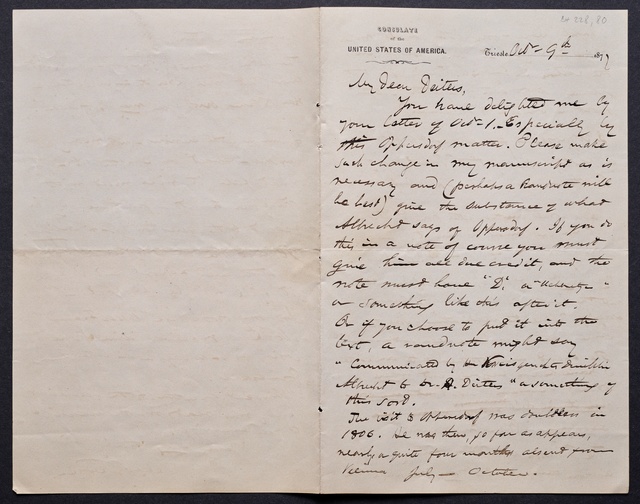 CONSULATE
of the
UNITED STATES OF AMERICA.
Trieste Oct. 9th 1877
My dear Deiters,
You have delighted me by
your letter of Oct. 1. Especially by
this Oppersdorf matter. Please make
such change in my manuscript as is
necessary and (perhaps a Randnote will
be best) give the substance of what
Albrecht says of Oppersdorf. If you do
this in a note of course you must
give him all due credit, and the
note must have "D." or
or something like this after it.
Or if you choose to put it into the
text, a randnote might say
"Communicated by
Albrecht to Dr. Deiters" or something of
this sort.
The visit to Oppersdorf was doubtless in
1806. He was then, so far as appears,
nearly or quite four months absent from
Vienna July – October.